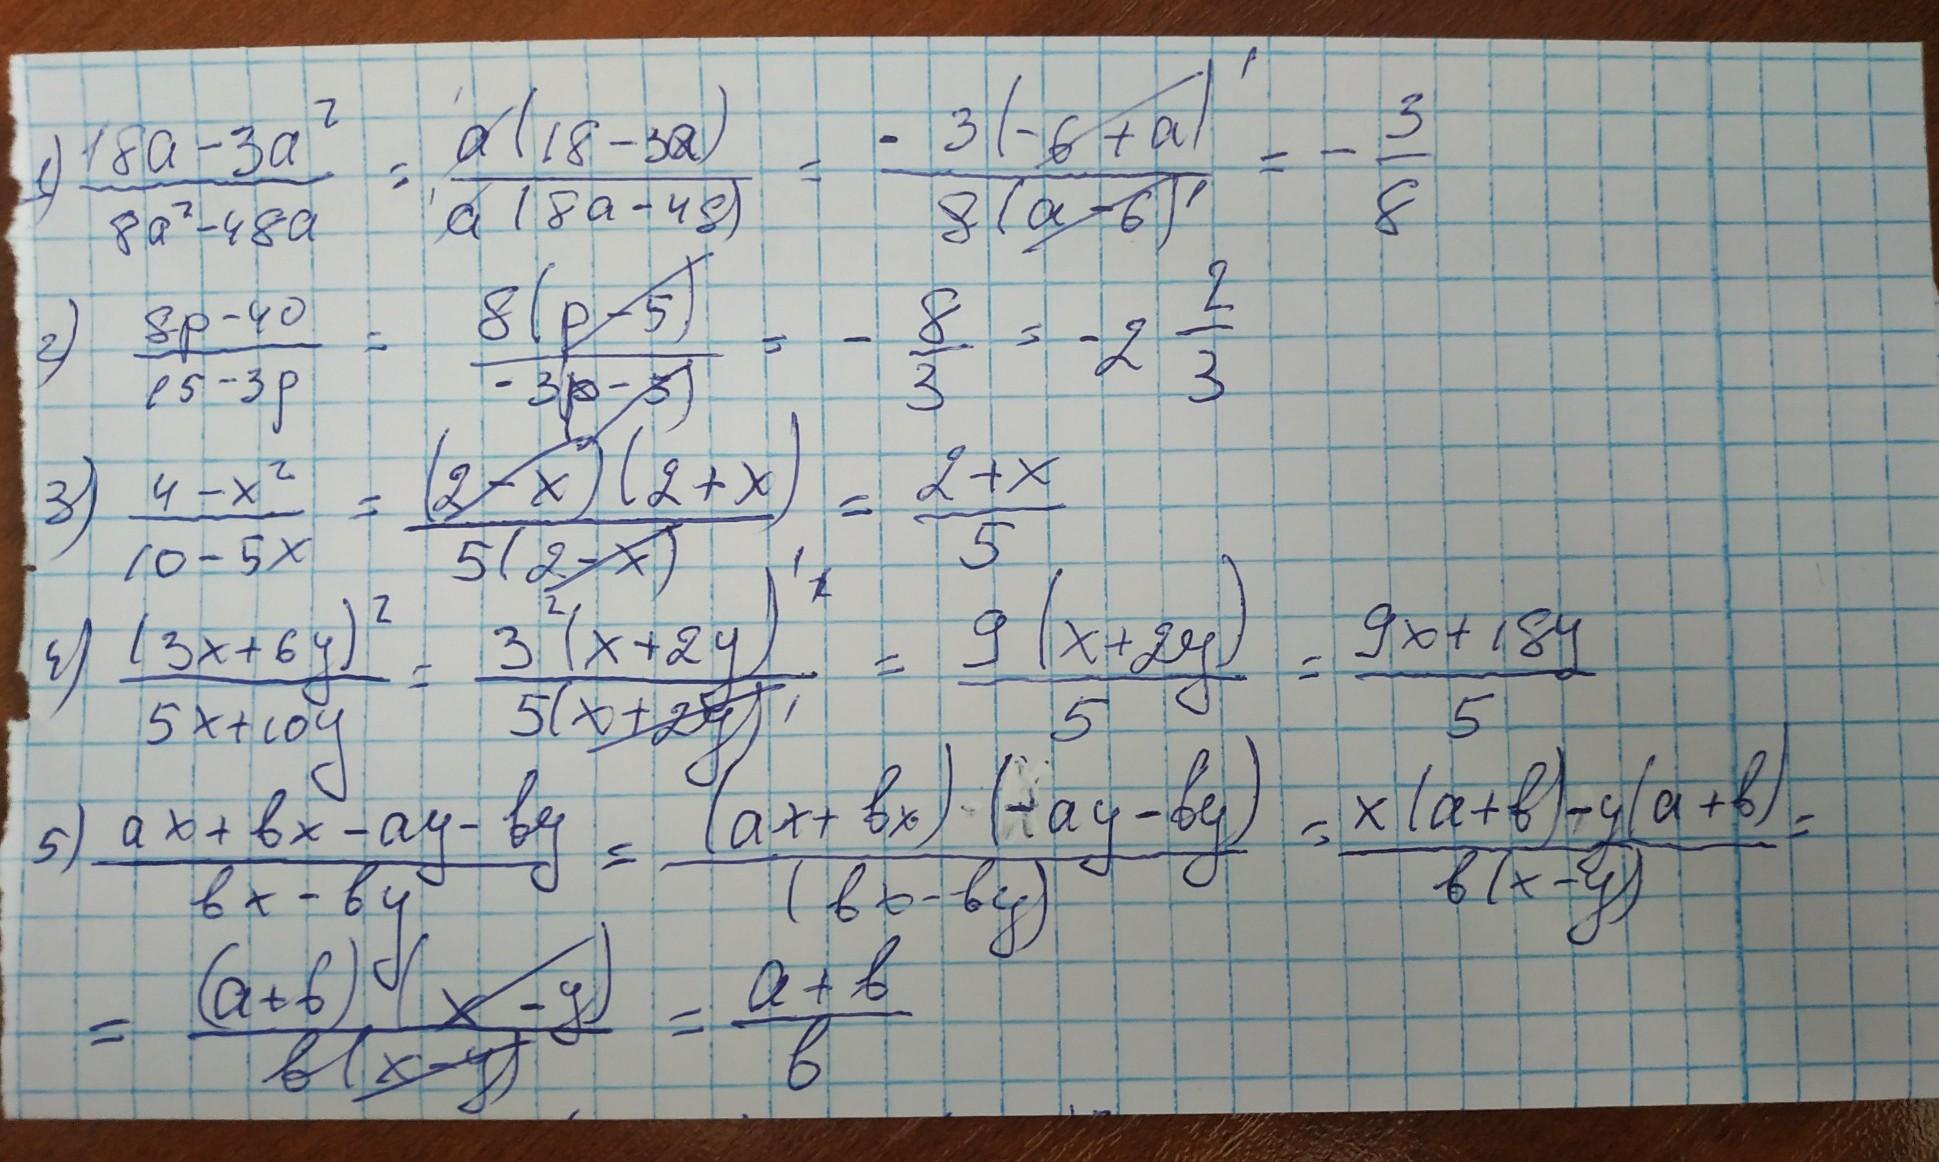 1) (18a-3a²)/(8a²-48a) = a(18-3a)/a(8a-48) = -3(-6+a)/8(a-6) = -3/8
2) (8p-40)/(15-3p) = 8(p-5)/-3(p-5) = -8/3 = -2 2/3
3) (4-x²)/(10-5x) = (2-x)(2+x)/5(2-x) = (2+x)/5
4) (3x+6y)²/(5x+10y) = 3²(x+2y)/5(x+2y) = 9(x+2y)/5 = (9x+18y)/5
5) (ax+bx-ay-by)/(bx-by) = (ax+bx)(-ay-by)/(bx-by) = x(a+b)-y(a+b)/b(x-y) =
= (a+b)(x-y)/b(x-y) = (a+b)/b